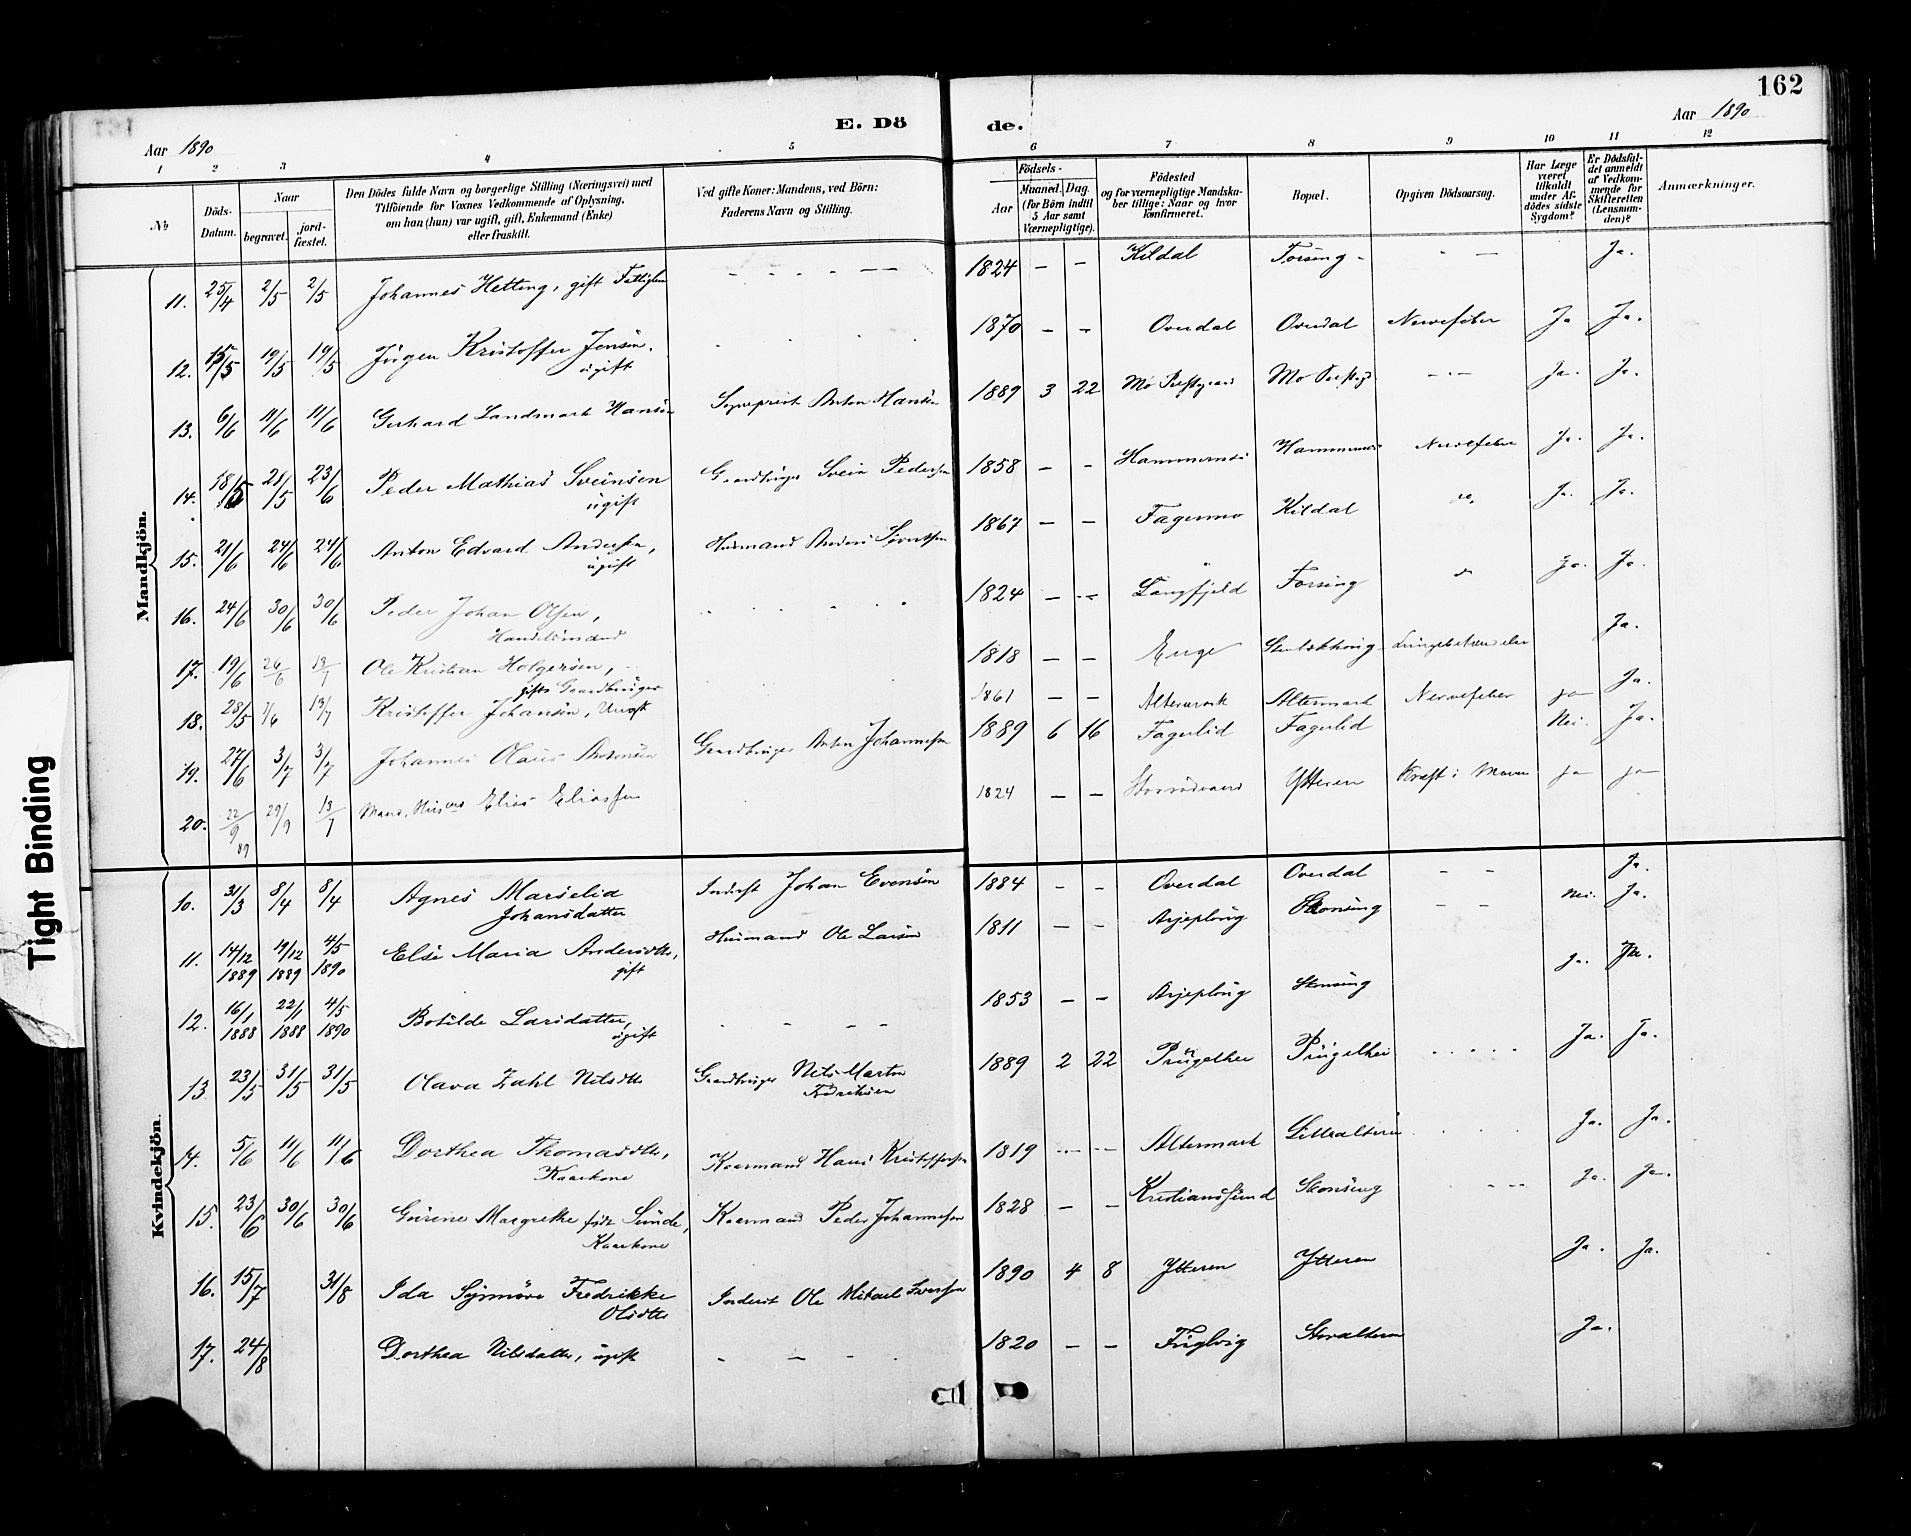 162
E. Dö de.
Aar 1890
Aar 1890
1 2 3 4 5 6 7 8 9 10 11 12
№
Döds-Datum.
Naar
begravet.
jord-fæstet.
Den Dödes fulde Navn og borgerlige Stilling (Næringsvei) med
Tilföiende for Voxnes Vedkommende af Oplysning,
om han (hun) var ugift, gift, Enkemand (Enke)
eller fraskilt.
Ved gifte Koner: Mandens, ved Börn:
Faderens Navn og Stilling.
Födsels-
Aar
Maaned. Dag.
(for Börn indtil
5 Aar samt
Værnepligtige).
Födested
og for værnepligtige Mandska-
ber tillige: Naar og hvor
konfirmeret.
Bopæl.
Opgiven Dödsaarsag.
Har Læge
været
tilkaldt
under Af-
dödes sidste
Sygdom?
Er Dödsfal-
det anmeldt
af Vedkom-
mende for
Skifteretten
(Lensman-
den)?
Anmærkninger.
Mandkjön.
11. 25/4 2/5 2/5 Johannes Hetting, gift Fattiglem - - - - - - 1824 - - Kildal Forsing - - Ja.
12. 15/5 19/5 19/5 Jörgen Kristoffer Jensen. 1870 - - Overdal Overdal Nervefeber Ja Ja.
ugift
13. 6/6 11/6 11/6 Gerhard Landmark Hansen Sogneprest Anton Hansen 1889 3 22 Mo Prestgaard Mo - - - Ja. Ja.
14. 18/5 21/5 23/6 Peder Mathias Sveinsen Gaardbruger Svein Pedersen 1858 - - Hammernes Hammernes Nervefeber Ja. Ja.
ugift
15. 21/6 24/6 24/6 Anton Edvard Andersen, Husmand Anders Sivertsen 1867 - - Fagermo Kildal do. Ja. Ja.
ugift
16. 24/6 30/6 30/6 Peder Johan Olsen, 1824 - - Langfjeld Forsing do Ja. Ja.
Handelsmand
17. 19/6 26/6 13/7 Ole Kristian Holgersen, 1818 - - Enge Lungebetændelse Ja.
gift Gaardbruger
18. 28/5 1/6 13/7 Kristoffer Johansen, 1861 - - Altermark Altermark Nervefeber ja Ja.
19. 27/6 3/7 3/7 Johannes Olaus Antonsen Gaardbruger Anton Johannessen 1889 6 16 Fagerlid Fagerlid Nei. Ja.
20. 22/9 89 29/9 13/7 Elias Eliassen 1824 - - Ytteren Kræft i Maven ja ja
Kvindekjön.
10. 31/3 8/4 8/4 Agnes Marselia Inderst Johan Evensen 1884 - - Overdal Overdal - - Ja.
Johansdatter
11. 14/12 1889 19/12 1889 4/5 1890 Else Maria Andersdtr, Husmand Ole Larsen 1811 - - Arjeploug Skonseng - - Nei. Ja.
gift
12. 16/1 1888 22/1 1888 4/5 1890 Botilde Larsdatter, - - - 1853 - - Arjeploug Skonseng Ja. Ja.
ugift
13. 23/5 31/5 31/5 Olava Zahl Nilsdtr Gaardbruger Nils Martin 1889 2 22 Ja. Ja.
Fredriksen
14. 5/6 11/6 11/6 Dorthea Thomasdtr, Kaarmand Hans Kristoffersen 1819 - - Altermark Ja. Ja.
Kaarkone
15. 23/6 30/6 30/6 Gurine Margrethe født Sunde, Kaarmand Peder Johannessen 1828 - - Kristianssund Skonseng - - - Ja. Ja.
Kaarkone
16. 15/7 31/8 Ida Synnøve Fredrikke Inderst Ole Mikael Iversen 1890 4 8 Ytteren Ytteren Ja. Ja.
Olsdtr
17. 24/8 Dorthea Nilsdatter, ugift - - - - 1820 - - Fuglvig Storalteren Ja.
Tight Binding